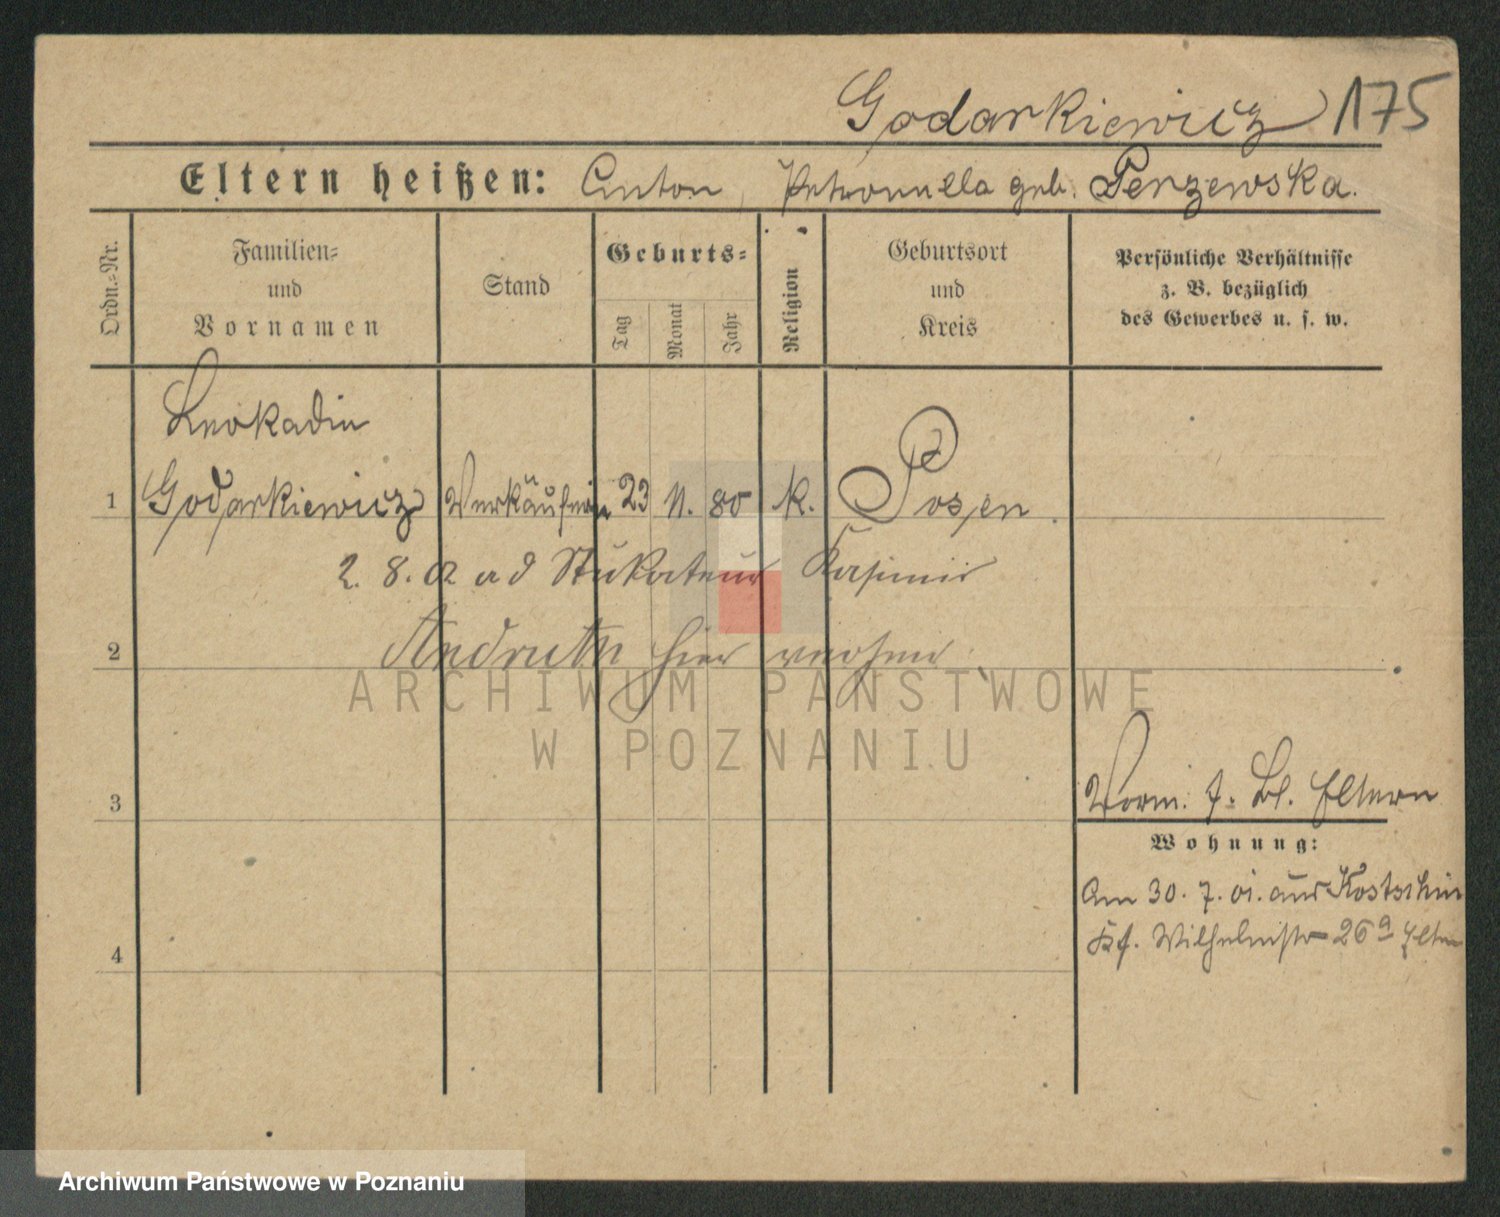 Godarkiewicz 175
Eltern heißen: Anton, Petronella geb. Perzewska.
Ordn.=Nr.
Familien=
und
Vornamen
Stand
Geburts=
Tag
Monat
Jahr
Religion
Geburtsort
und
Kreis
Persönliche Verhältnisse
z. B. bezüglich
des Gewerbes u. s. w.
Leokadia
1 Godarkiewicz Verkäuferin 23 11. 80 k. Posen
2. 8. 02 ad Stukateur Kasimir
2 hier
ARCHIWUM PAŃSTWOWE
W POZNANIU
3
Vorm. f. Bl. Eltern
Wohnung:
Am 30. 7. 01. aus Kostschin
4 Wilhelmstr 26a Eltern
Archiwum Państwowe w Poznaniu